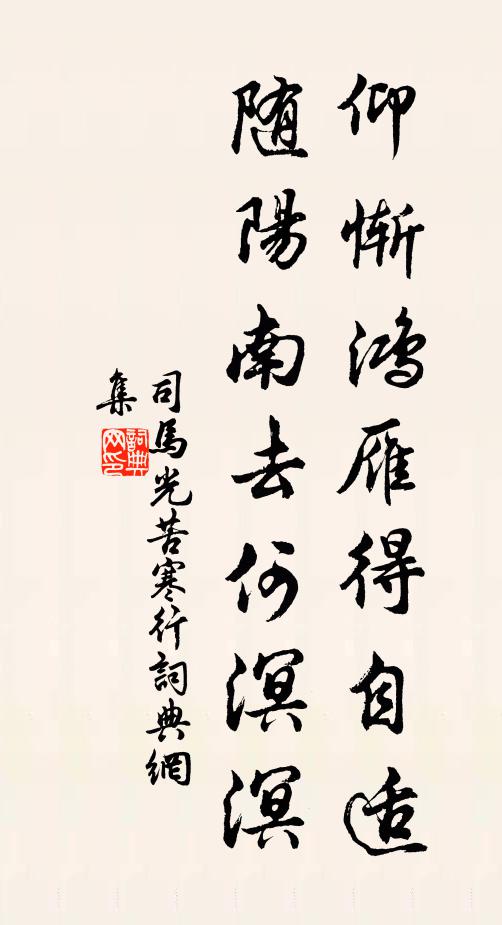 仰惭鸿雁得自适
随陽南去何溟溟
司馬光苦寒行詞典網
集
詞典网印